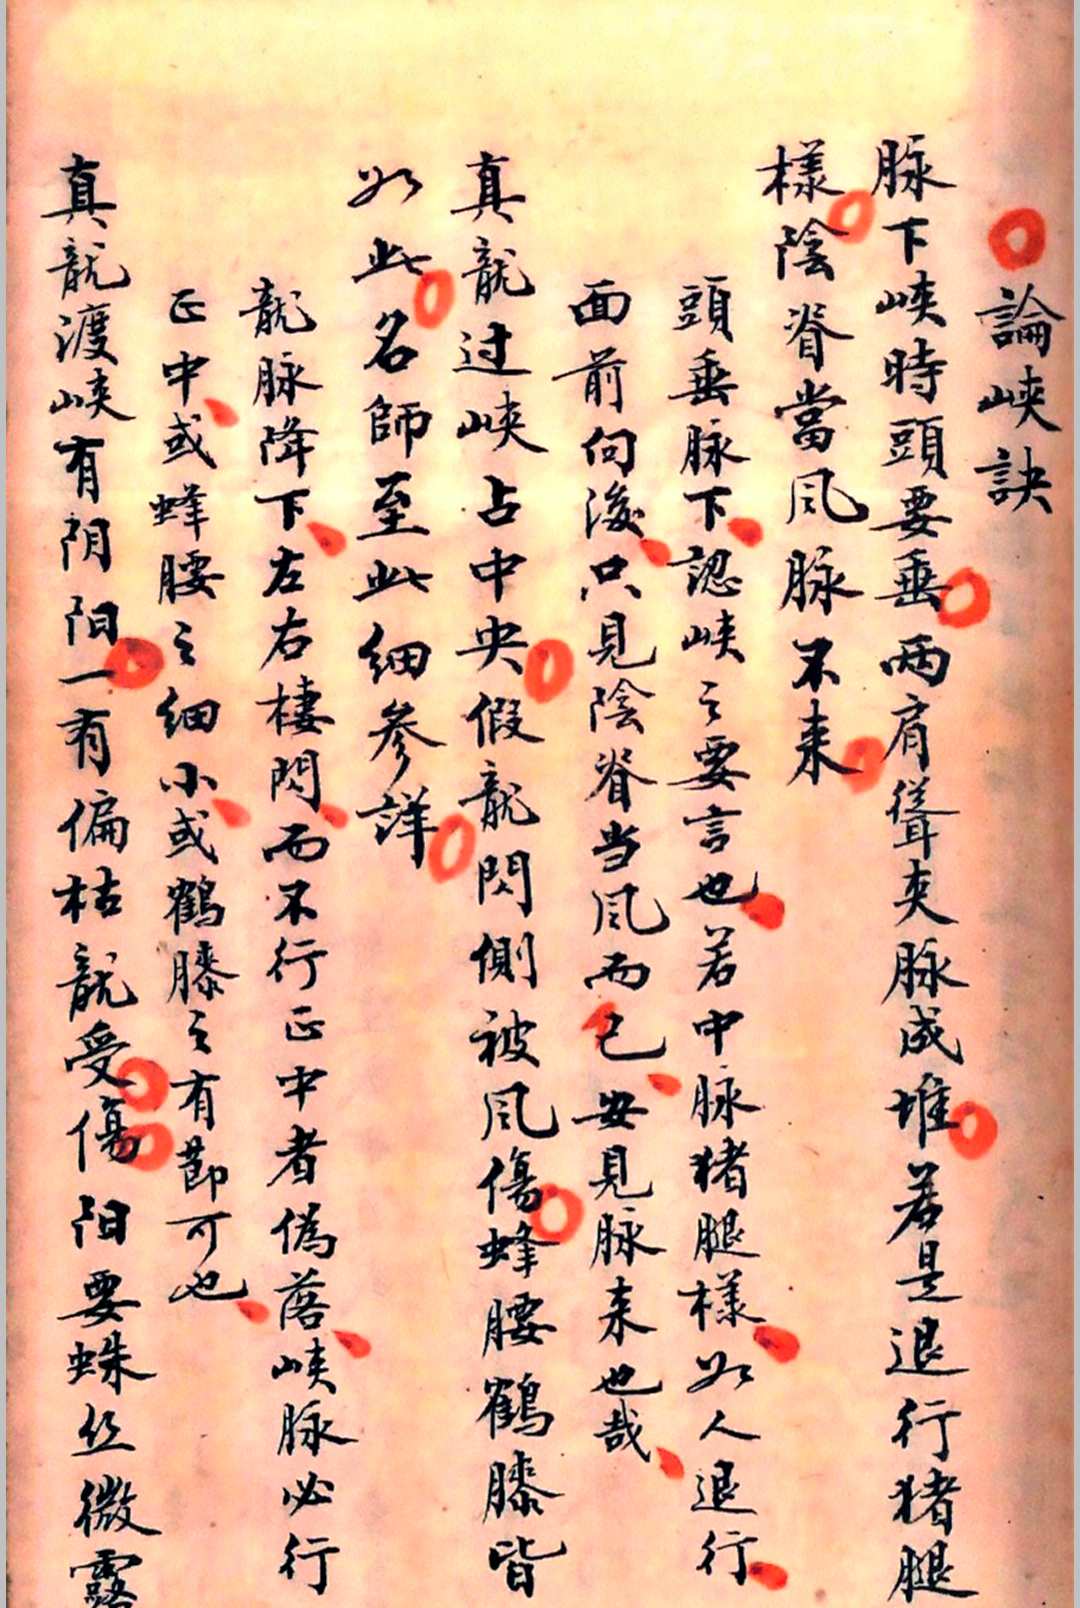 論峽訣
脉下峽時頭要垂两肩聳夹脉成堆若是退行猪腿
樣陰脊當风脉不来
頭垂脉下認峽之要言也若中脉猪腿樣如人退行
面前向後只見陰脊当风而已安見脉来也哉
真龍过峽占中央假龍閃側被风傷蜂腰鶴膝皆
如此名師至此細参詳
龍脉降下左右棲閃而不行正中者偽落峽脉必行
正中或蜂腰之細小或鶴膝之有節可也
真龍渡峽有阴阳一有偏枯龍受傷阳要蛛丝微露